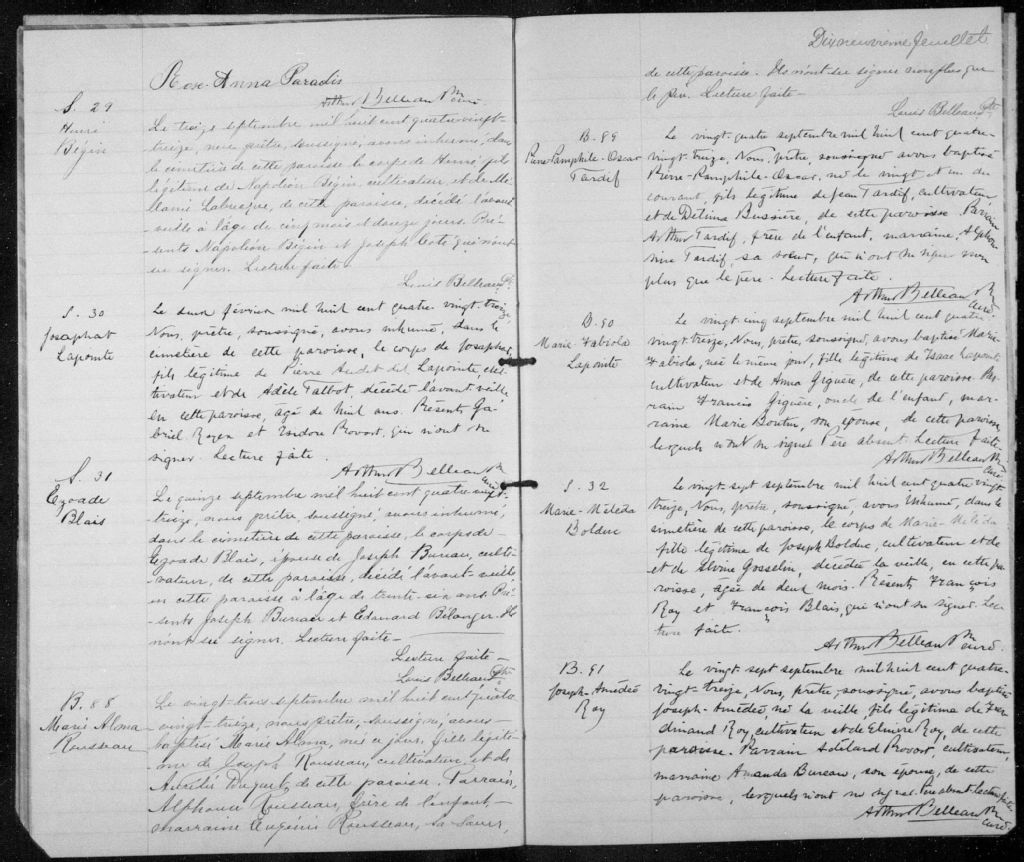 Rose-Anna Paradis
Arthur Belleau Ptre
curé.
S. 29
Henri
Bégin
Le treize septembre mil huit cent quatre vingt-
treize, nous prêtre, soussigné, avons inhumé, dans
le cimetière de cette paroisse le corps de Henri, fils
légitime de Napoléon Bégin, cultivateur, et de Mé-
lanie Labrecque, de cette paroisse, décédé l'avant
veille à l'âge de cinq mois et douze jours. Pré-
sents Napoléon Bégin et Joseph Coté qui n'ont
su signer. Lecture faite.
Louis Belleau Ptre
S. 30
Josaphat
Lapointe
Le février mil huit cent quatre-vingt-treize,
Nous, prêtre, soussigné, avons inhumé, dans le
cimetière de cette paroisse, le corps de Josaphat,
fils légitime de Pierre Audet dit Lapointe, cul-
tivateur et de Adèle Talbot, décédé l'avant veille
en cette paroisse, agé de huit ans. Présents Ga-
briel et Isidore Provost, qui n'ont su
signer. Lecture faite.
Arthur Belleau Ptre
curé
S. 31
Ezoade
Blais
Le quinze septembre mil huit cent quatre vingt-
treize, nous prêtre, soussigné, avons inhumé,
dans le cimetière de cette paroisse, le corps de
Ezoade Blais, épouse de Joseph Bureau, culti-
vateur, de cette paroisse, décédé l'avant-veille
en cette paroisse à l'âge de trente-six ans Pré-
sents Joseph Bureau et Edouard Bélanger. Ils
n'ont su signer. Lecture faite—
Lecture faite—
Louis Belleau Ptre
B. 88
Marie Alma
Rousseau
Le vingt-trois septembre mil huit cent quatre
vingt-treize, nous prêtre, soussigné, avons
baptisé Marie Alma, née ce jour, fille légiti-
me de Joseph Rousseau, cultivateur, et de
Aurélie Duquet, de cette paroisse, Parrain,
Alphonse Rousseau, frère de l'enfant,
marraine Eugénie Rousseau, sa soeur,
Dixneuvième feuillet
de cette paroisse. Ils n'ont su signer non plus que
le père. Lecture faite—
Louis Belleau Ptre
B. 89
Pierre-Pamphile-Oscar
Tardif
Le vingt-quatre septembre mil huit cent quatre-
vingt-treize, Nous, prêtre, soussigné avons baptisé
Pierre-Pamphile-Oscar, né le vingt et un du
courant, fils légitime de Jean Tardif, cultivateur,
et de Délima Bussière, de cette paroisse. Parrain
Arthur Tardif, frère de l'enfant, marraine, Alphon-
sine Tardif, sa soeur, qui n'ont su signer non
plus que le père. Lecture faite.
Arthur Belleau Ptre
curé.
B. 90
Marie-Fabiola
Lapointe
Le vingt-cinq septembre mil huit cent quatre
vingt-treize, Nous, prêtre, soussigné, avons baptisé Marie-
Fabiola, née le même jour, fille légitime de Isaac Lapointe
cultivateur et de Anna Giguère, de cette paroisse. Par-
rain Francis Giguère, oncle de l'enfant, mar-
raine Marie Boutin, son épouse, de cette paroisse,
lesquels n'ont su signer Père absent. Lecture faite.
Arthur Belleau Ptre
curé
S. 32
Marie-Méléda
Bolduc
Le vingt-sept septembre mil huit cent quatre vingt
treize, Nous, prêtre, soussigné, avons inhumé, dans le
cimetière de cette paroisse, le corps de Marie-Méléda
fille légitime de Joseph Bolduc, cultivateur et de
et de Gosselin, décédée la veille, en cette pa-
roisse, âgée de deux mois. Présents François
Roy et François Blais, qui n'ont su signer. Lec-
ture faite.
Arthur Belleau Ptre
curé
B. 91
Joseph-Amédée
Roy
Le vingt sept septembre mil huit cent quatre-
vingt-treize, Nous, prêtre-soussigné, avons baptisé
Joseph-Amédée, né la veille, fils légitime de Fer-
dinand Roy, cultivateur et de Elmire Roy, de cette
paroisse. Parrain Adélard Provost, cultivateur,
marraine Amanda Bureau, son épouse, de cette
paroisse, lesquels n'ont su signer. Père absent. Lecture faite.
Arthur Belleau Ptre
curé